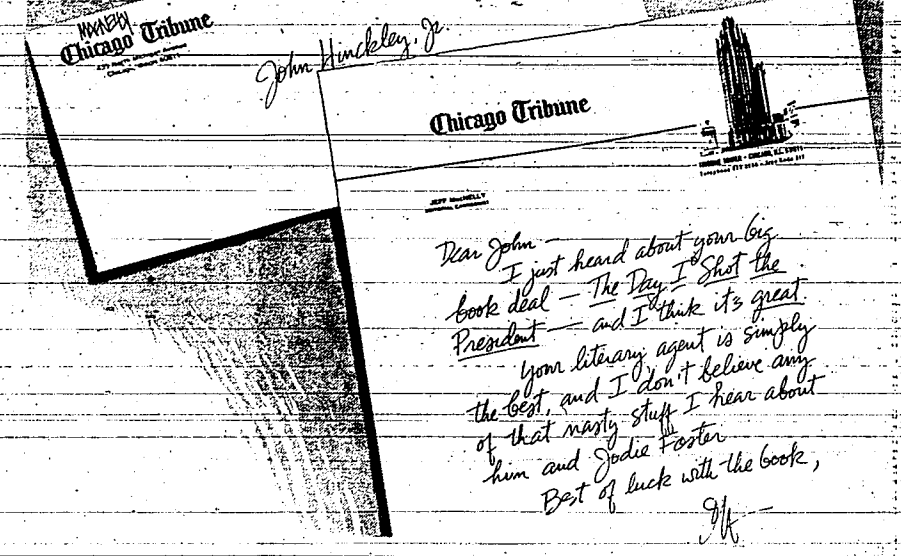 MACNELLY
Chicago Tribune
John Hinckley, Jr.
Chicago Tribune
TRIBUNE TOWER • CHICAGO, ILL. 60611
JEFF MacNELLY
EDITORIAL CARTOONIST
Dear John —
I just heard about your big
book deal — The Day I Shot the
President — and I think it's great
Your literary agent is simply
the best, and I don't believe any
of that nasty stuff I hear about
him and Jodie Foster
Best of luck with the book,